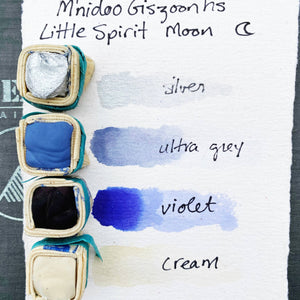 M'nidoo Giszoonhs
Little Spirit Moon
silver
ultra grey
violet
cream